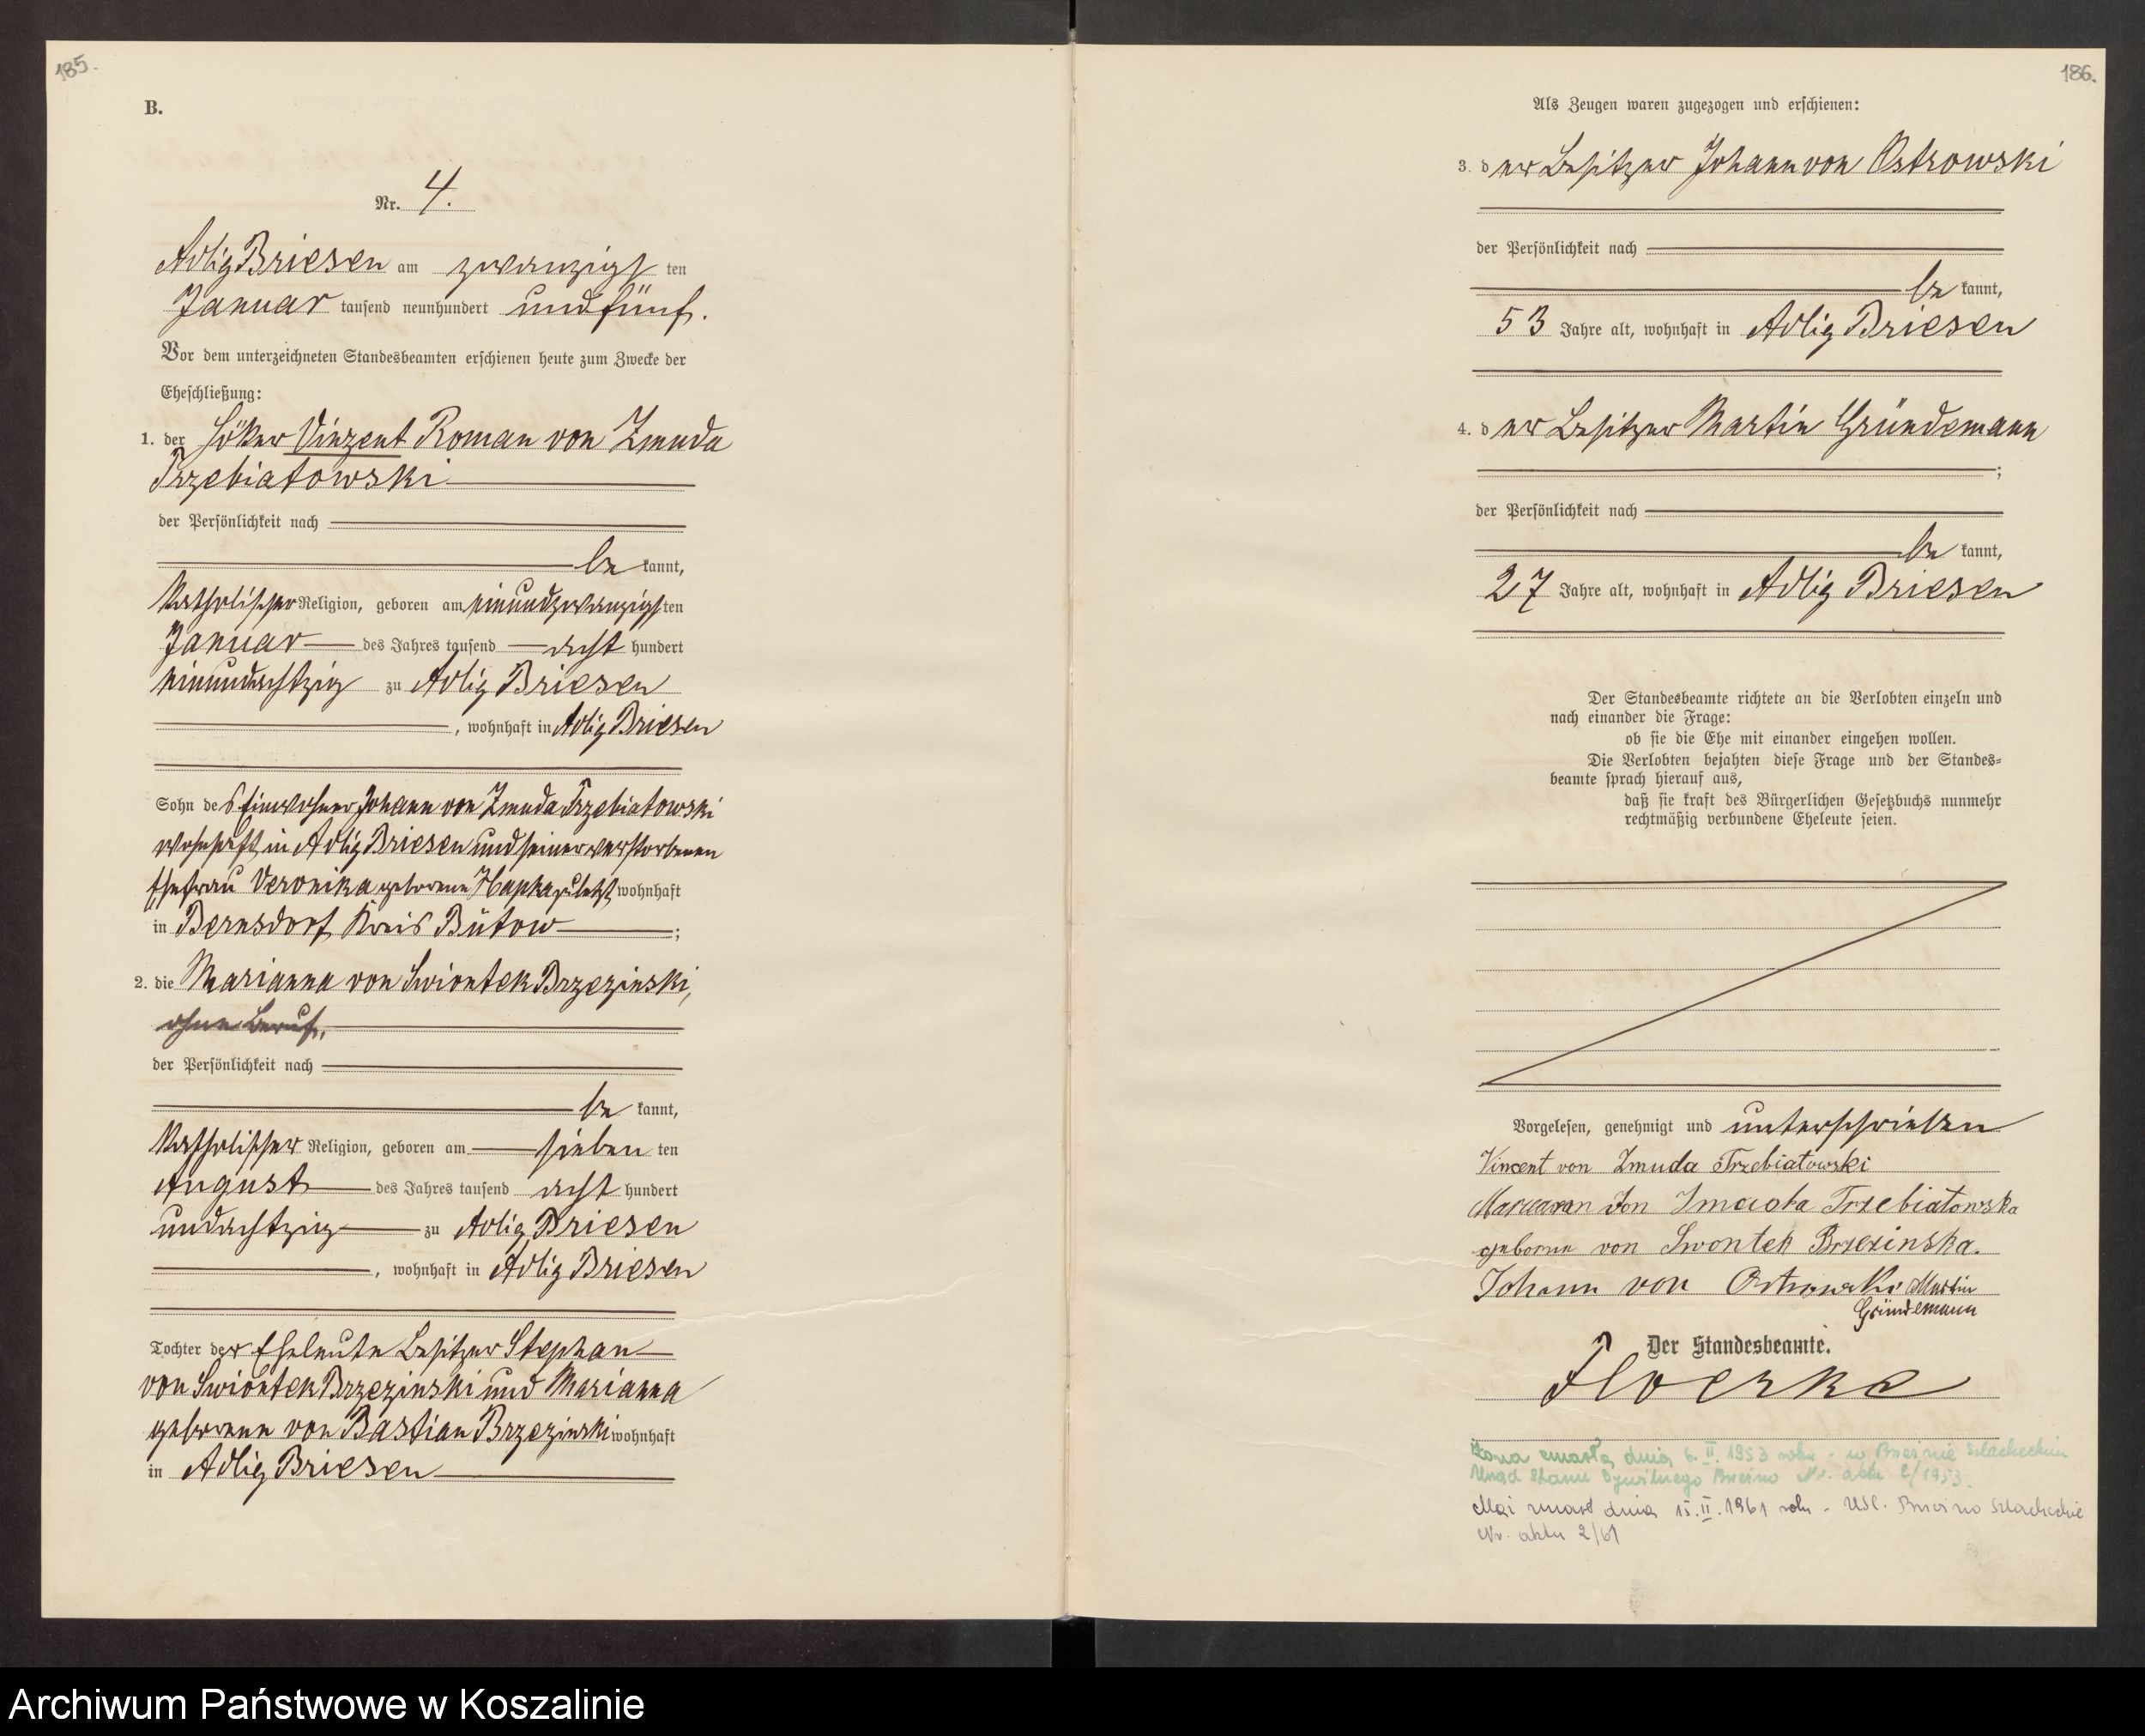 185.
B.
Nr. 4.
Adlig Briesen am zwanzigsten
Januar tausend neunhundert und fünf.
Vor dem unterzeichneten Standesbeamten erschienen heute zum Zwecke der
Eheschließung:
1. der Höker Vinzent Roman von Zmuda
Trzebiatowski
der Persönlichkeit nach
be kannt,
katholischer Religion, geboren am einundzwanzigsten
Januar des Jahres tausend acht hundert
einundachtzig zu Adlig Briesen
, wohnhaft in Adlig Briesen
Sohn des Einwohner Johann von Zmuda Trzebiatowski
wohnhaft in Adlig Briesen und seiner verstorbenen
Ehefrau Veronika geborene Hapka zuletzt wohnhaft
in Bernsdorf Kreis Bütow ;
2. die Marianna von Swiontek Brzezinski,
ohne Beruf,
der Persönlichkeit nach
be kannt,
katholischer Religion, geboren am sieben ten
August des Jahres tausend acht hundert
undachtzig zu Adlig Briesen
, wohnhaft in Adlig Briesen
Tochter der Eheleute Besitzer Stephan
von Swiontek Brzezinski und Marianna
geborene von Bastian Brzezinski wohnhaft
in Adlig Briesen
186.
Als Zeugen waren zugezogen und erschienen:
3. der Besitzer Johann von Ostrowski
der Persönlichkeit nach
be kannt,
53 Jahre alt, wohnhaft in Adlig Briesen
4. der Besitzer Martin Gründemann
;
der Persönlichkeit nach
be kannt,
27 Jahre alt, wohnhaft in Adlig Briesen
Der Standesbeamte richtete an die Verlobten einzeln und
nach einander die Frage:
ob sie die Ehe mit einander eingehen wollen.
Die Verlobten bejahten diese Frage und der Standes=
beamte sprach hierauf aus,
daß sie kraft des Bürgerlichen Gesetzbuchs nunmehr
rechtmäßig verbundene Eheleute seien.
Vorgelesen, genehmigt und unterschrieben
Vincent von Zmuda Trzebiatowski
von Trzebiatowska
geborne von Swontek Brzezinska.
Johann von Ostrowski Martin
Gründemann
Der Standesbeamte.
Żona zmarła dnia 6.II.1953 roku - w Brzeźnie Szlacheckim
Urząd Stanu Cywilnego Brzeźno Nr. aktu 2/1953.
Mąż zmarł dnia 15.II.1961 roku - USC. Brzeźno Szlacheckie
Nr. aktu 2/61
Archiwum Państwowe w Koszalinie